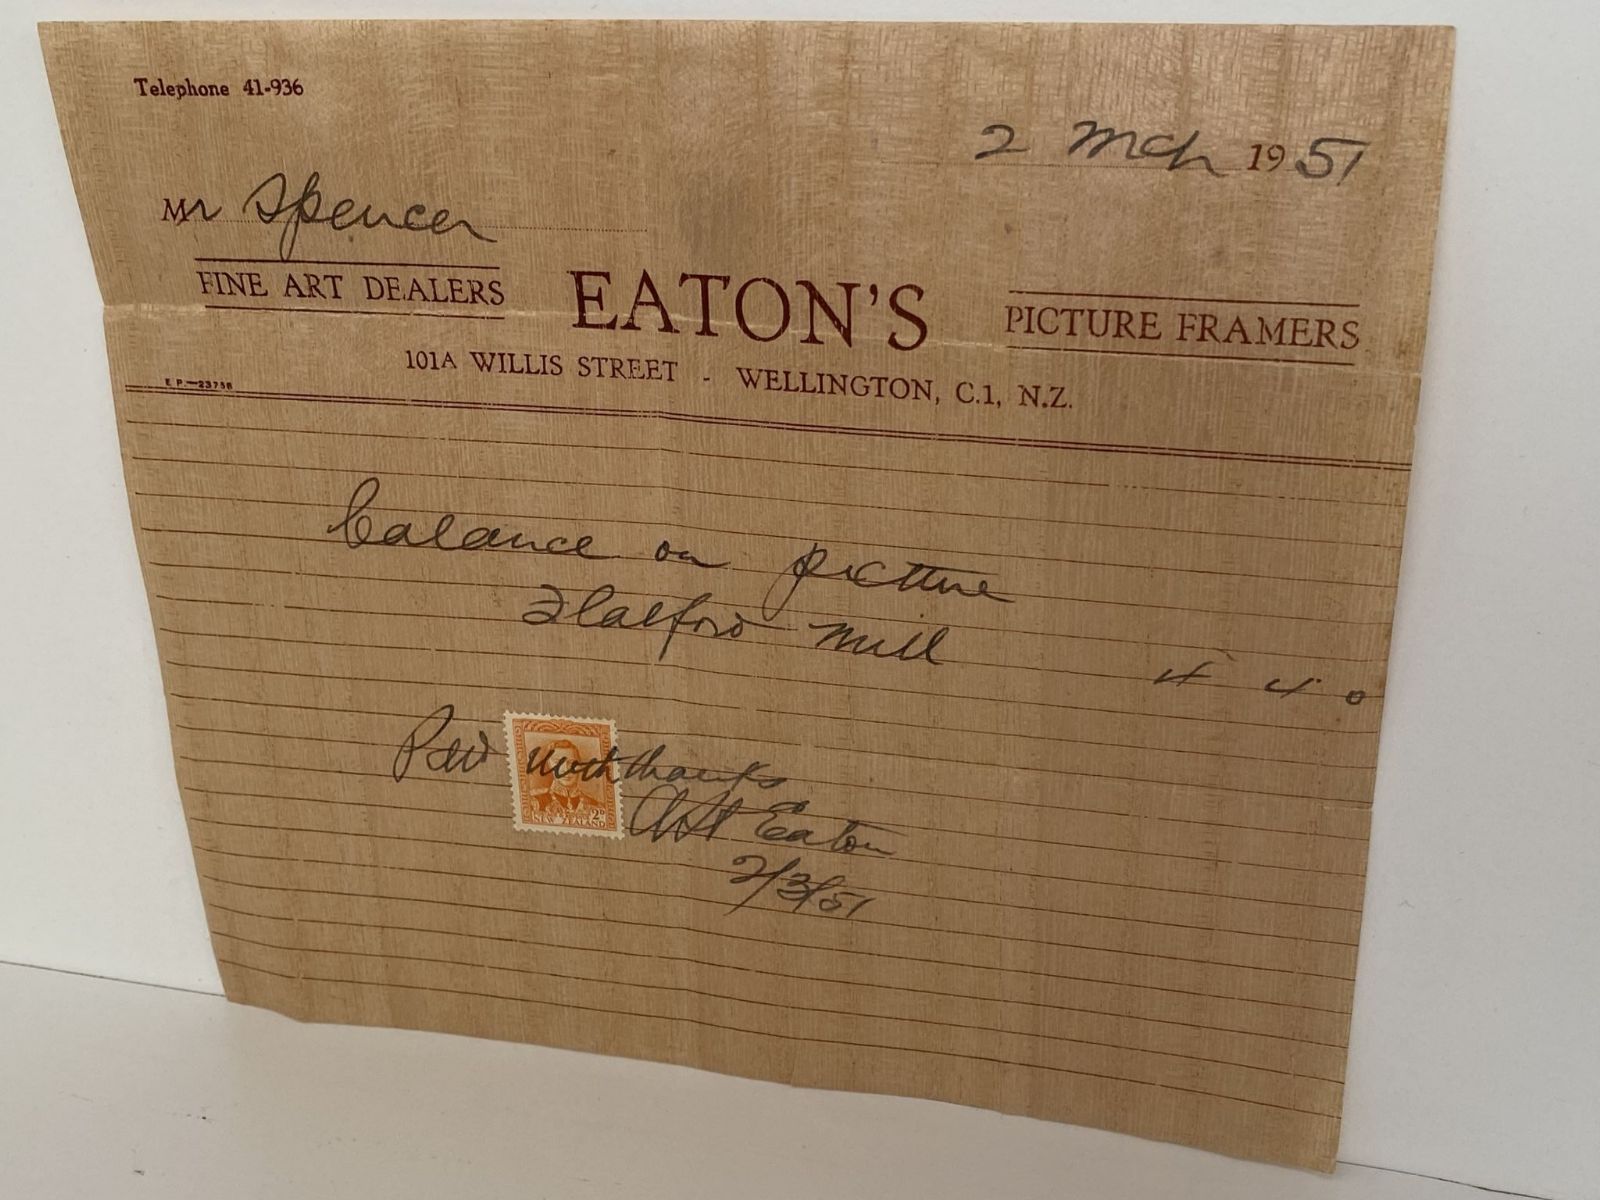 Telephone 41-936
2 Mch 1951
Mr Spencer
FINE ART DEALERS EATON'S PICTURE FRAMERS
101A WILLIS STREET - WELLINGTON, C.1, N.Z.
E P.—23758
balance on picture
Flatford Mill 4 4 0
Paid with thanks
Eaton
2/3/51
2D
NEW ZEALAND